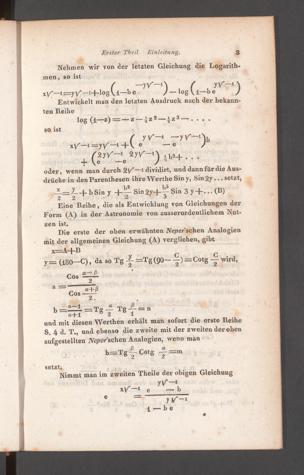 Erster Theil. Einleitung. 3
Nehmen wir von der letzten Gleichung die Logarith-
men, so ist
x√−1=y√−1+log(1−be^{−y√−1})−log(1−be^{y√−1})
Entwickelt man den letzten Ausdruck nach der bekann-
ten Reihe
log (1−z)=−z−½z²−⅓z³−....
so ist
x√−1=y√−1+(e^{y√−1}−e^{−y√−1})b
+(e^{2y√−1}−e^{−2y√−1})½b²+...
oder, wenn man durch 2√−1 dividirt, und dann für die Aus-
drücke in den Parenthesen ihre Werthe Sin y, Sin 2y... setzt,
x/2=y/2+b Sin y+b²/2 Sin 2y+b³/3 Sin 3y+... (B)
Eine Reihe, die als Entwicklung von Gleichungen der
Form (A) in der Astronomie von ausserordentlichem Nut-
zen ist.
Die erste der oben erwähnten Neper'schen Analogien
mit der allgemeinen Gleichung (A) verglichen, gibt
x=A+B
y=(180−C), da so Tg y/2=Tg(90−C/2)=Cotg C/2 wird,
a=Cos (α−β)/2 / Cos (α+β)/2
b=(a−1)/(a+1)=Tg α/2 Tg β/2=n
und mit diesen Werthen erhält man sofort die erste Reihe
S. 4 d. T., und ebenso die zweite mit der zweiten der oben
aufgestellten Neper'schen Analogien, wenn man
b=Tg β/2 Cotg α/2=m
setzt.
Nimmt man im zweiten Theile der obigen Gleichung
e^{x√−1}=(e^{y√−1}−b)/(1−be^{y√−1})